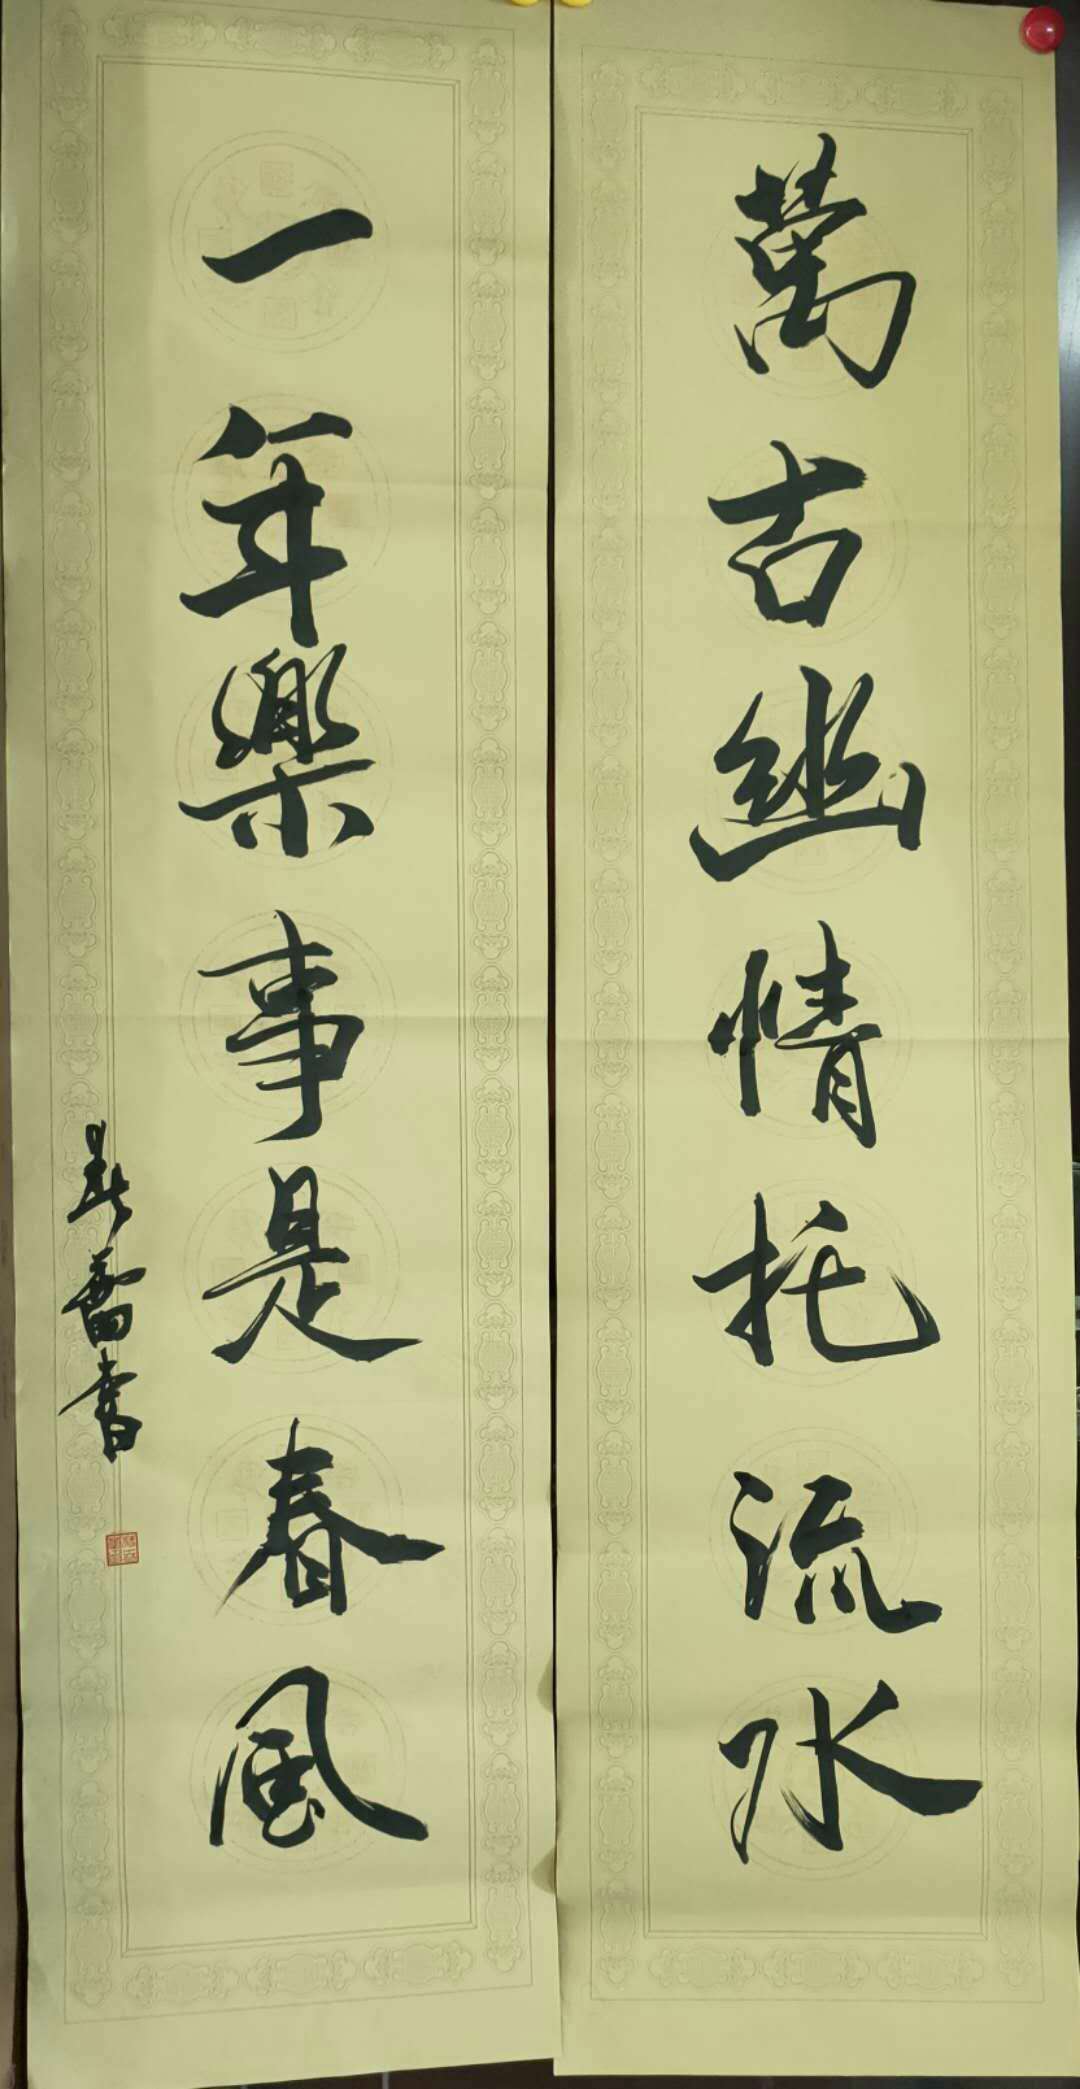 萬古幽情托流水
一年樂事是春風